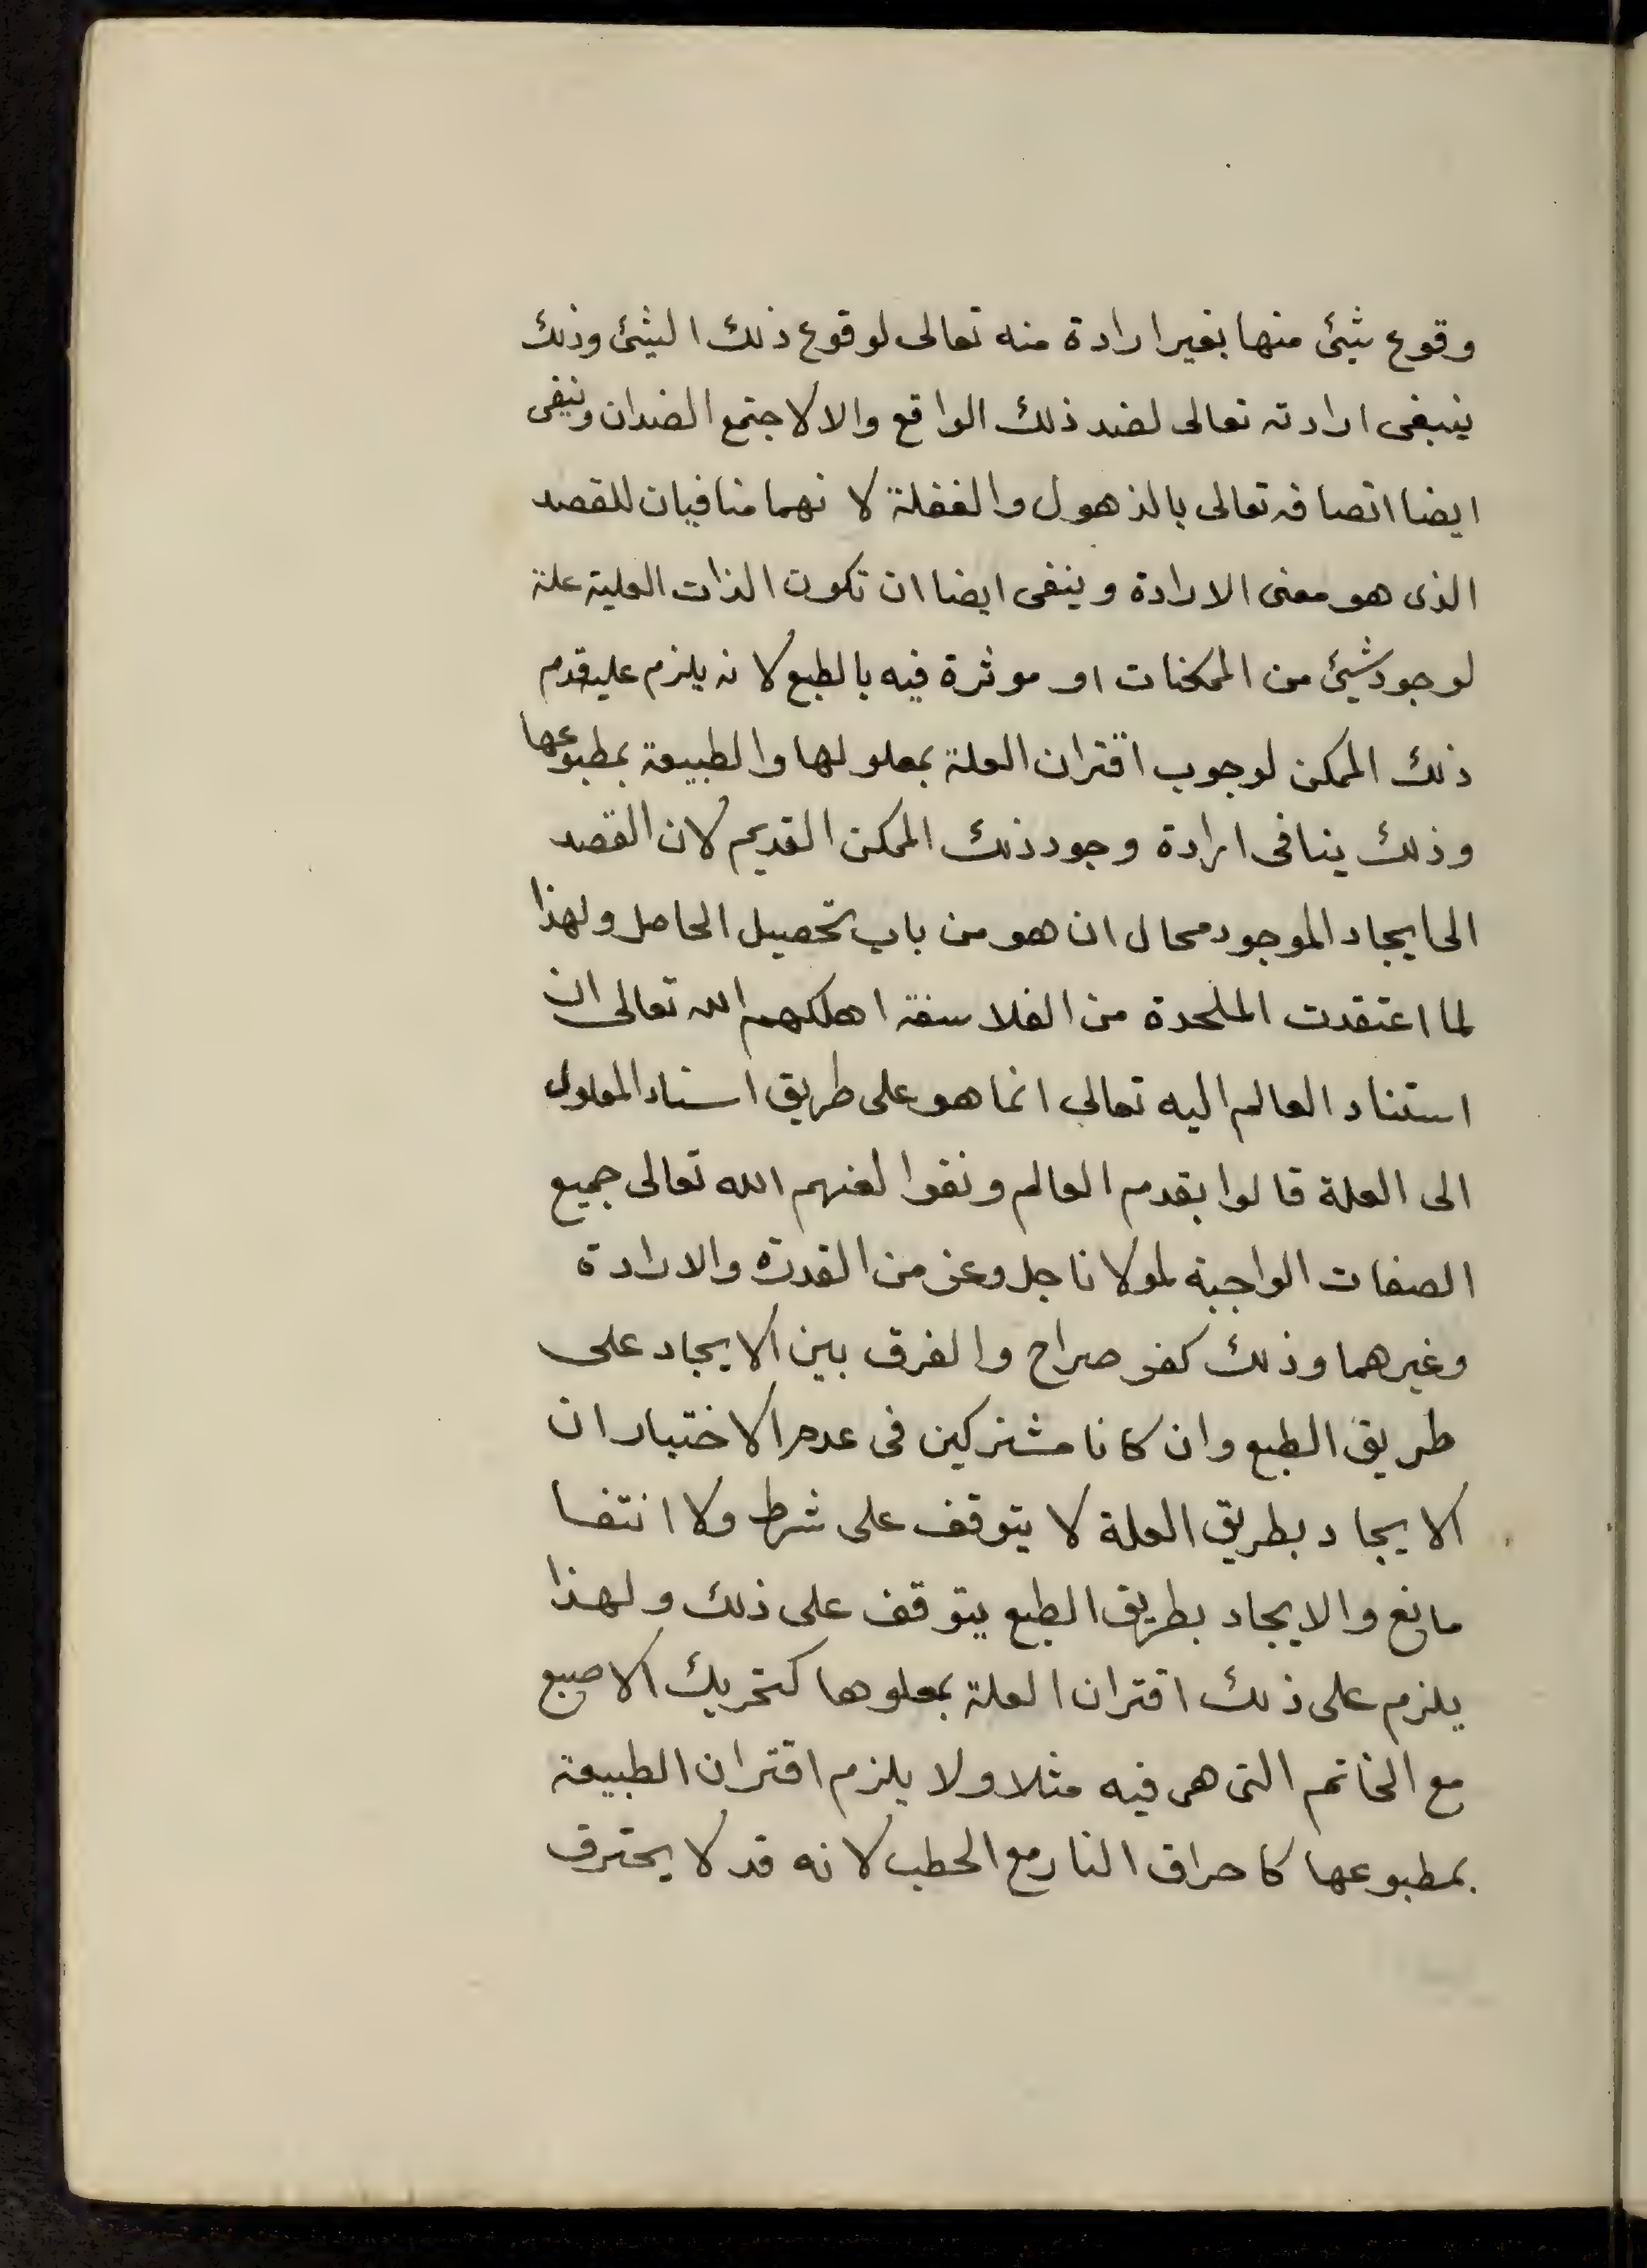 وقوع شئ منها بغير ارادة منه تعالى لوقوع ذلك الشئ وذلك
ينبغى ارادته تعالى لضد ذلك الواقع والا لاجتمع الضدان وينفى
ايضا اتصافه تعالى بالذهول والغفلة لانهما منافيان للقصد
الذى هو معنى الارادة وينفى ايضا ان تكون الذات العلية علة
لوجود شئ من الممكنات او موثرة فيه بالطبع لانه يلزم عليه قدم
ذلك الممكن لوجوب اقتران العلة بمعلولها والطبيعة بمطبوعها
وذلك ينافى ارادة وجود ذلك الممكن القديم لان القصد
الى ايجاد الموجود محال ان هو من باب تحصيل الحاصل ولهذا
لما اعتقدت الملحدة من الفلاسفة اهلكهم الله تعالى ان
استناد العالم اليه تعالى انما هو على طريق اسناد المعلول
الى العلة قالوا بقدم العالم ونفوا لعنهم الله تعالى جميع
الصفات الواجبة لمولانا جل وعز من القدرة والارادة
وغيرهما وذلك كفر صراح والفرق بين الايجاد على
طريق الطبع وان كانا مشتركين فى عدم الاختيار ان
الايجاد بطريق العلة لا يتوقف على شرط ولا انتفا
مانع والايجاد بطريق الطبع يتوقف على ذلك ولهذا
يلزم على ذلك اقتران العلة بمعلوها كتحريك الاصبع
مع الخاتم التى هى فيه مثلا ولا يلزم اقتران الطبيعة
بمطبوعها كاحراق النار مع الحطب لانه قد لا يحترق